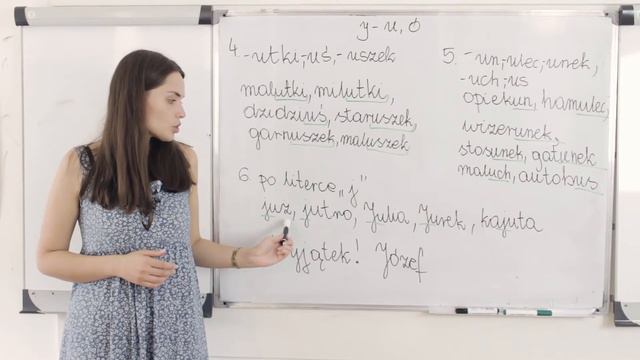 y - u, ó
4. -utki,-uś,-uszek
malutki, milutki,
dzidziuś, staruszek,
garnuszek, maluszek
5. -un,-ulec,-unek,
-uch,-us
opiekun, hamulec,
wizerunek,
stosunek, gatunek
maluch, autobus
6. po literce „j”
już, jutro, Julia, Jurek, kajuta
yjątek! Józef